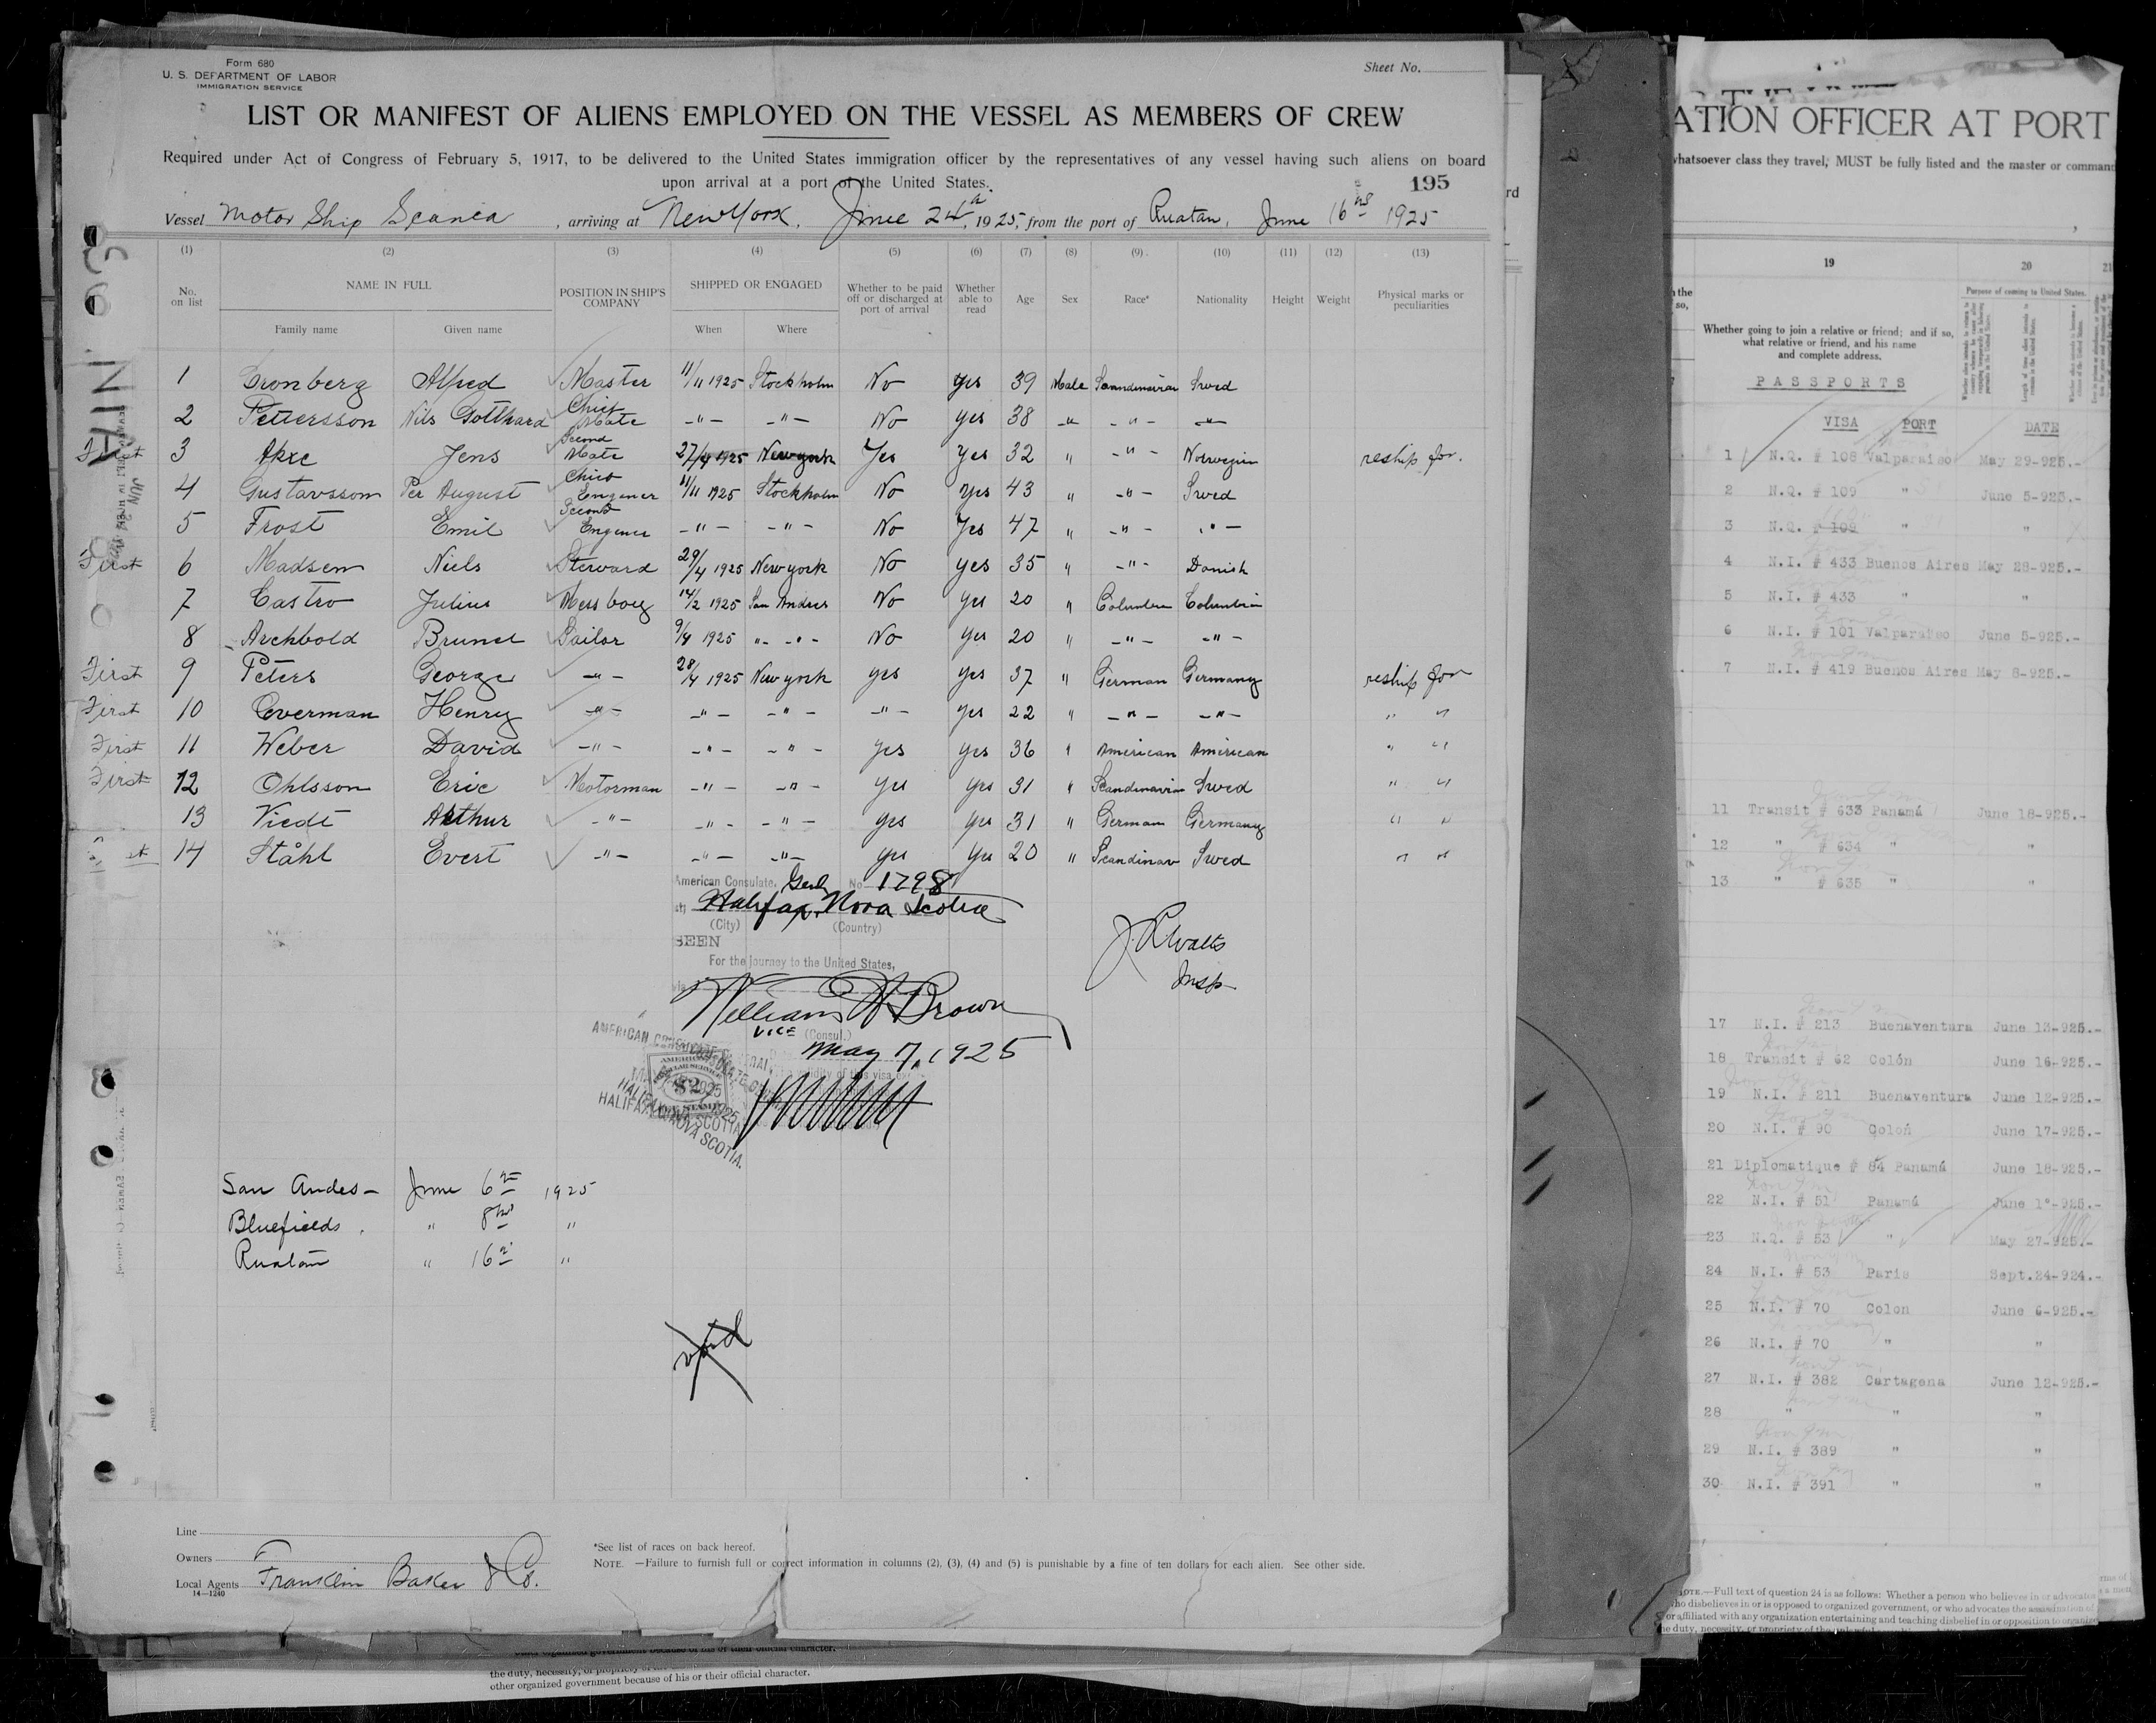 Form 680
U. S. DEPARTMENT OF LABOR
IMMIGRATION SERVICE
Sheet No.
LIST OR MANIFEST OF ALIENS EMPLOYED ON THE VESSEL AS MEMBERS OF CREW
Required under Act of Congress of February 5, 1917, to be delivered to the United States immigration officer by the representatives of any vessel having such aliens on board
upon arrival at a port of the United States.
195
Vessel Motor Ship Scania, arriving at New York, June 24th, 1925, from the port of Ruatan, June 16 1925
(1) (2) (3) (4) (5) (6) (7) (8) (9) (10) (11) (12) (13)
No. on list NAME IN FULL POSITION IN SHIP'S COMPANY SHIPPED OR ENGAGED Whether to be paid off or discharged at port of arrival Whether able to read Age Sex Race* Nationality Height Weight Physical marks or peculiarities
Family name Given name When Where
1 Cronberg Alfred Master 11/11 1925 Stockholm No Yes 39 Male Scandinavian Swed
2 Pettersson Nils Gotthard Chief Mate -"- -"- No Yes 38 -"- -"- -"-
First 3 Akre Jens Second Mate 27/4 1925 New york Yes Yes 32 " -"- Norwegian reship for.
4 Gustavsson Per August Chief Engener 11/11 1925 Stockholm No Yes 43 " -"- Swed
5 Frost Emil Second Engener -"- -"- No Yes 47 " -"- -"-
First 6 Madsen Niels Steward 29/4 1925 New york No Yes 35 " -"- Danish
7 Castro Julius Mess boy 14/2 1925 San Andres No Yes 20 " Columbia Columbia
8 Archbold Brunel Sailor 9/4 1925 " -"- No Yes 20 " -"- -"-
First 9 Peters George -"- 28/4 1925 New york yes yes 37 " German Germany reship for
First 10 Overman Henry -"- -"- -"- -"- yes 22 " -"- -"- " "
First 11 Weber David -"- -"- -"- yes yes 36 " American American " "
First 12 Ohlsson Eric Motorman -"- -"- yes yes 31 " Scandinavian Swed " "
13 Viedt Arthur -"- -"- -"- yes yes 31 " German Germany " "
14 Ståhl Evert -"- -"- -"- yes yes 20 " Scandinav Swed " "
American Consulate, Genl No 1298
Halifax, Nova Scotia
(City) (Country)
SEEN
For the journey to the United States,
William W Brown
VICE (Consul.)
May 7, 1925
J. R. Watts
Insp
AMERICAN CONSULATE GENERAL
HALIFAX, NOVA SCOTIA.
San Andes - June 6 1925
Bluefields, " 8 "
Ruatan " 16 "
void
Line
Owners
Local Agents Franklin Baker & Co.
14-1240
*See list of races on back hereof.
NOTE. —Failure to furnish full or correct information in columns (2), (3), (4) and (5) is punishable by a fine of ten dollars for each alien. See other side.
the duty, necessity, or propriety of
other organized government because of his or their official character.
ATION OFFICER AT PORT
whatsoever class they travel, MUST be fully listed and the master or command
19 20 21
Purpose of coming to United States.
Whether going to join a relative or friend; and if so,
what relative or friend, and his name
and complete address.
PASSPORTS
VISA PORT DATE
1 N.Q. # 108 Valparaiso May 29-925.-
2 N.Q. # 109 " June 5-925.-
3 N.Q. # 109 " "
4 N.I. # 433 Buenos Aires May 28-925.-
5 N.I. # 433 " "
6 N.I. # 101 Valparaiso June 5-925.-
7 N.I. # 419 Buenos Aires May 8-925.-
11 Transit # 633 Panamá June 18-925.-
12 " # 634 " "
13 " # 635 " "
17 N.I. # 213 Buenaventura June 13-925.-
18 Transit # 62 Colón June 16-925.-
19 N.I. # 211 Buenaventura June 12-925.-
20 N.I. # 90 Colón June 17-925.-
21 Diplomatique # 84 Panamá June 18-925.-
22 N.I. # 51 Panamá June 1°-925.-
23 N.Q. # 53 " May 27-925.-
24 N.I. # 53 Paris Sept.24-924.-
25 N.I. # 70 Colon June 6-925.-
26 N.I. # 70 " "
27 N.I. # 382 Cartagena June 12-925.-
28 " " "
29 N.I. # 389 " "
30 N.I. # 391 " "
NOTE.—Full text of question 24 is as follows: Whether a person who believes in or advocates
who disbelieves in or is opposed to organized government, or who advocates the assassination of
or affiliated with any organization entertaining and teaching disbelief in or opposition to organized